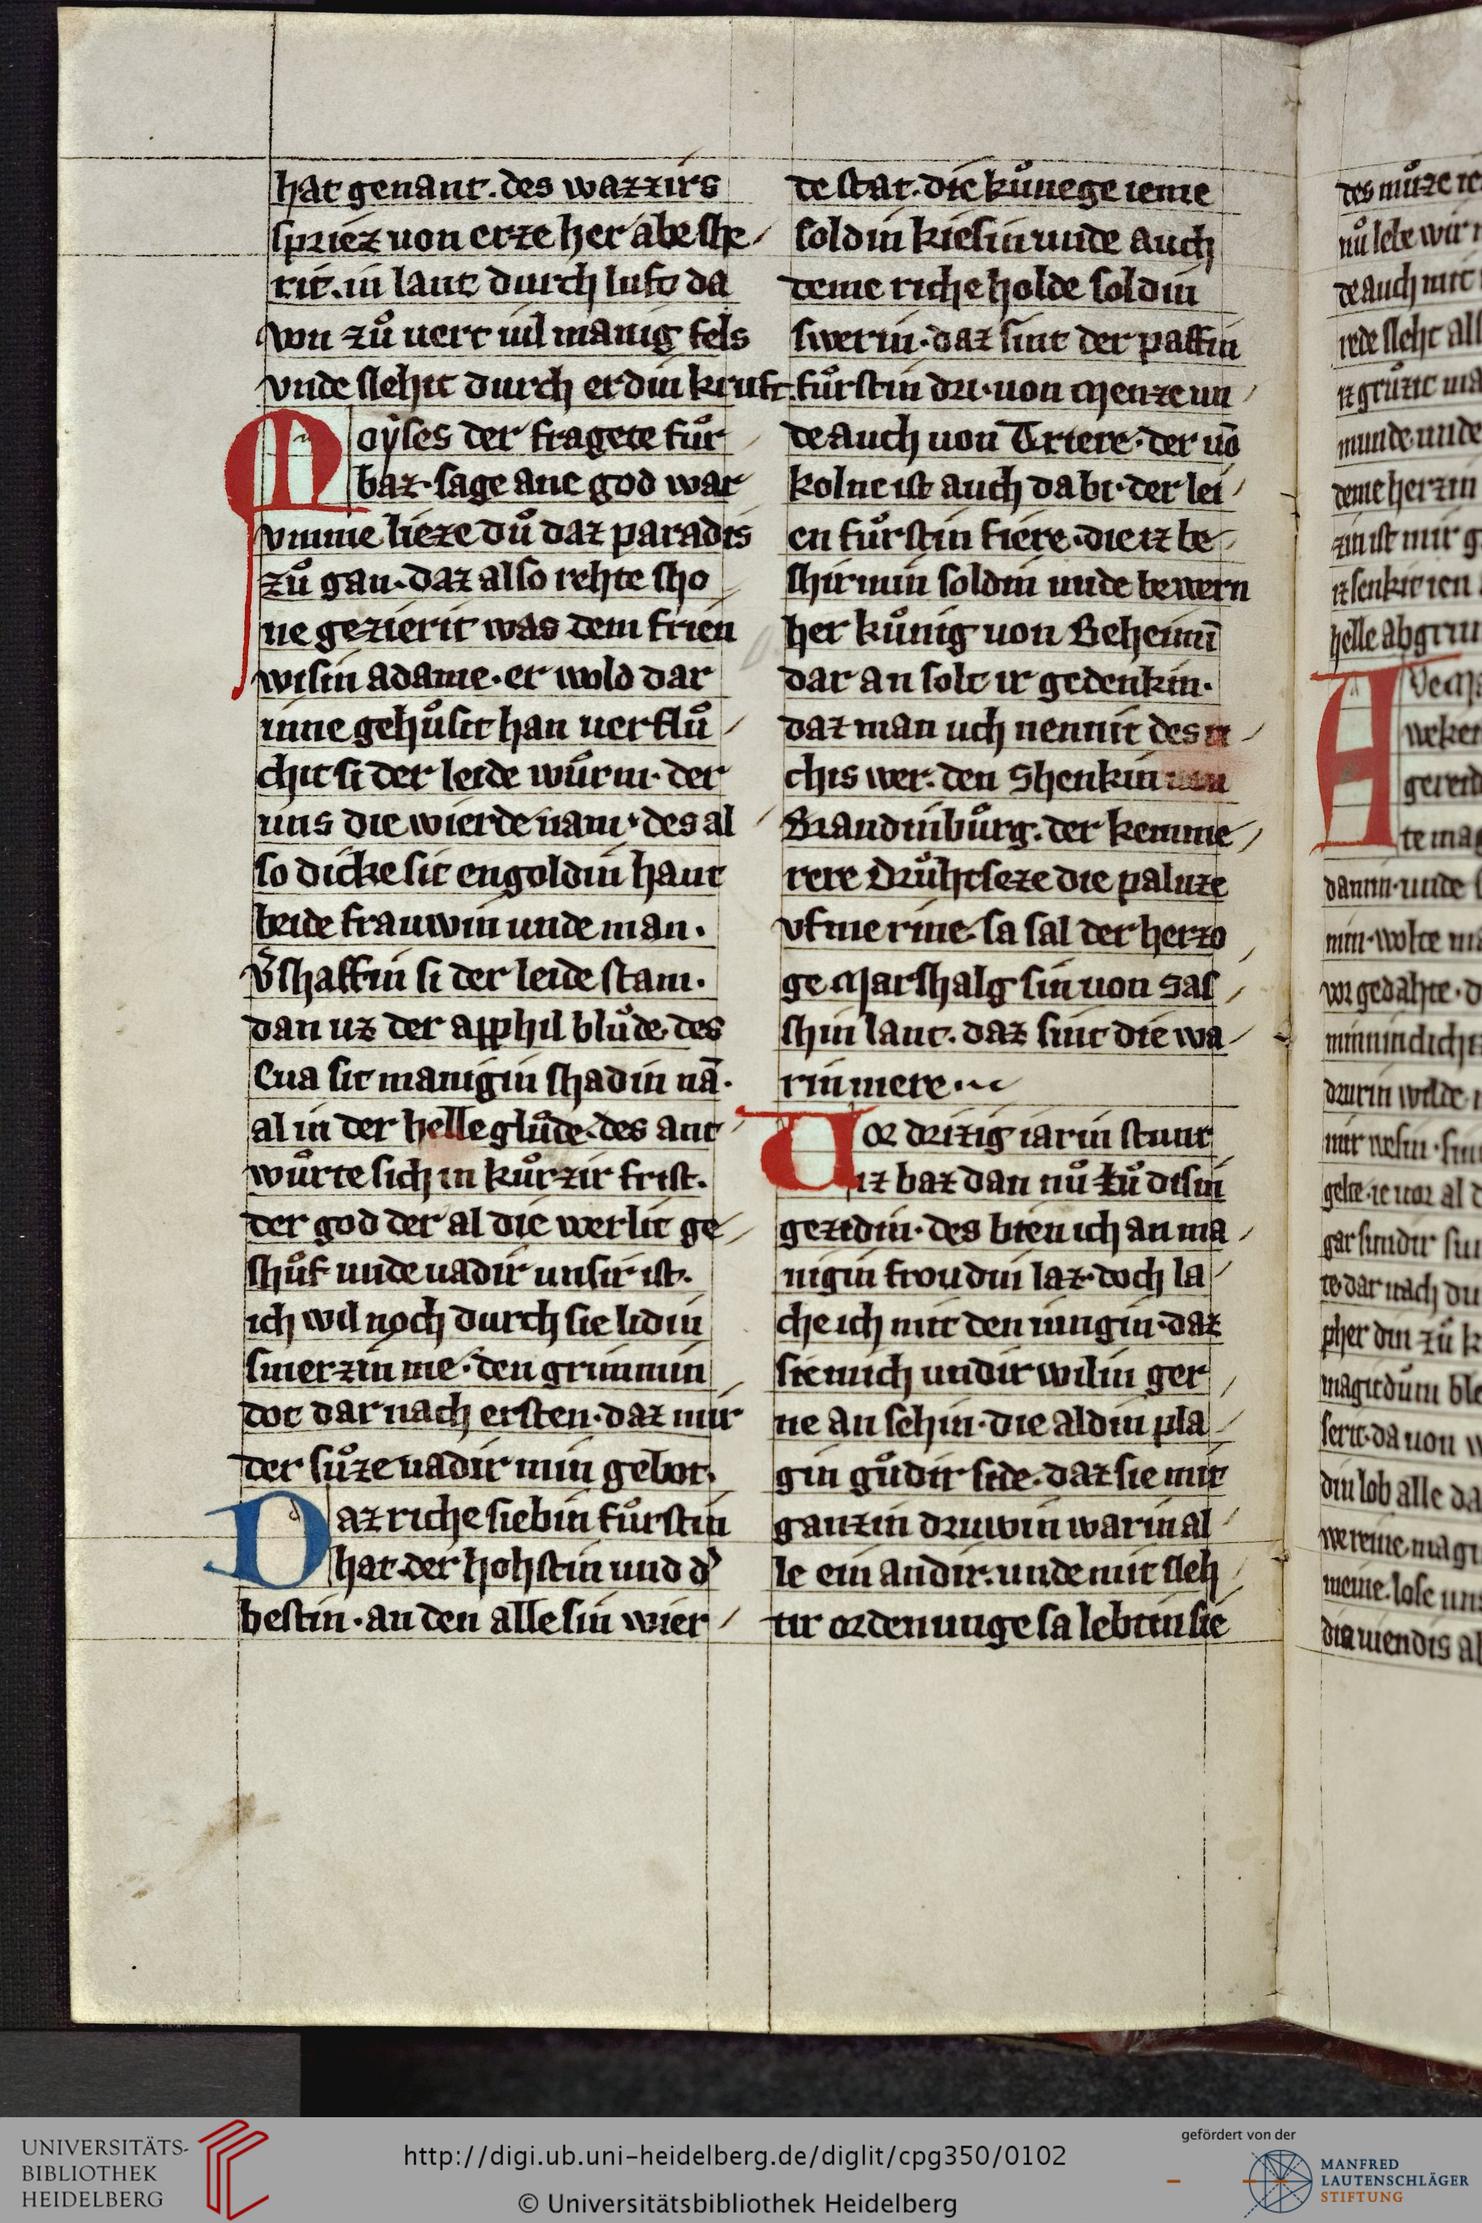 hat genant. des wazzirs
spriez von erze her abe she
rit. in lant durch luft da
von zuͦ vert vil manig fels
vnde slehit durch erdin kruft.
Moẏses der fragete fuͦr
baz. sage ane god war
vmme lieze duͦ daz paradis
zuͦ gan. daz also rehte sho
ne gezierit was dem frien
wisin adame. er wold dar
inne gehuͦsit han verfluͦ
chit si der leide wuͦrm. der
uns die wierde nam. des al
so dicke sit engoldin hant
beide frauwin unde man.
v̉shaffin si der leide stam.
dan uz der apphil bluͦde. des
Eua sit manigin shadin nā.
al in der helle gluͦde. des ant
wuͦrte sich in kuͦrzir frist.
der god der al die werlit ge
shuͦf unde vadir unsir ist.
ich wil noch durch sie lidin
smerzin me. den grimmin
dot dar nach ersten. daz mir
der suͦze vadir min gebot.
Daz riche siebin fuͦrstin
hat. der hohstin und d̉
bestin. an den alle sin wier
de stat. die kuͦnege ieme
soldin kiesin unde auch
deme riche holde soldin
swerin. daz sint der paffin
fuͦrstin dri. von Menze un
de auch von Triere. der vō
kolne ist auch da bi. der lei
en fuͦrstin fiere. die iz be
shirmin soldin unde bewern
her kuͦnig von Beheimī
dar an solt ir gedenkin.
daz man uch nennit des ri
chis wer. den Shenkin von
Brandinbuͦrg. der kemme
rere Druͦhtseze die palnze
vf me rine. sa sal der herzo
ge Marshalg sin von Sas
shin lant. daz sint die wa
rin mere.
Uor drizig iarin stunt
iz baz dan nuͦ zuͦ disin
gezidin. des bien ich an ma
nigin froudin laz. doch la
che ich mit den iungin. daz
sie mich undir wilin ger
ne an sehin. die aldin pla
gin guͦdir side. daz sie mit
ganzin druwin warin al
le ein andir. unde mit sleh
tir ordenunge sa lebtin sie
UNIVERSITÄTS-
BIBLIOTHEK
HEIDELBERG
http://digi.ub.uni-heidelberg.de/diglit/cpg350/0102
© Universitätsbibliothek Heidelberg
gefördert von der
MANFRED
LAUTENSCHLÄGER
STIFTUNG